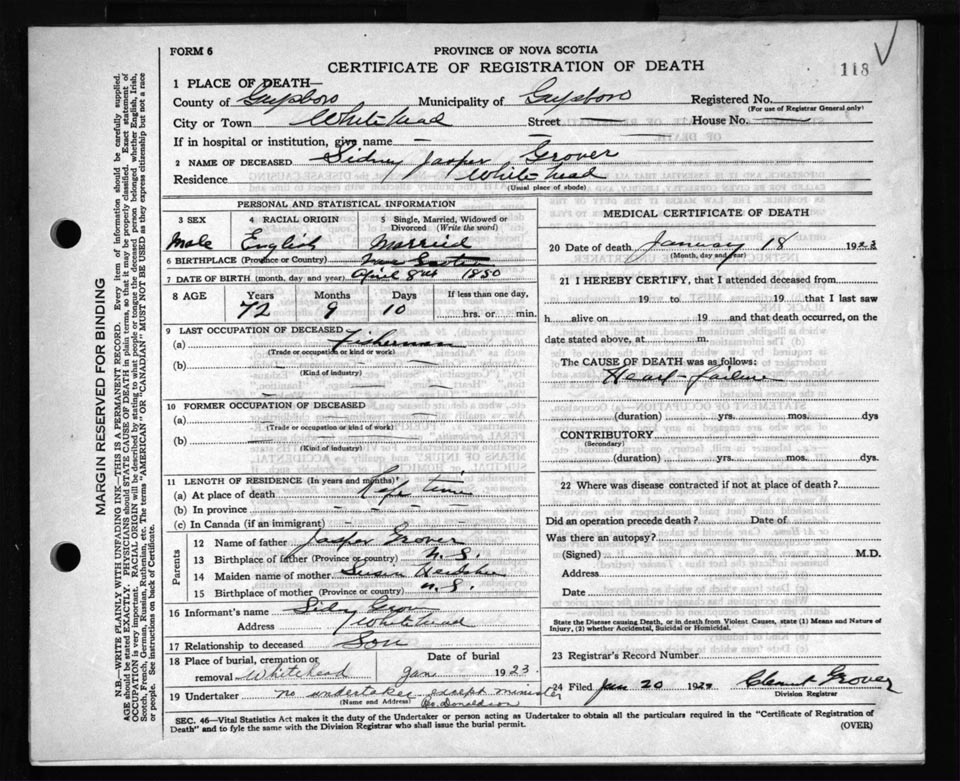 118
FORM 6
PROVINCE OF NOVA SCOTIA
CERTIFICATE OF REGISTRATION OF DEATH
1 PLACE OF DEATH—
County of Guysboro Municipality of Guysboro Registered No.
(For use of Registrar General only)
City or Town Whitehead Street House No.
If in hospital or institution, give name
2 NAME OF DECEASED Sidney Jasper Grover
Residence Whitehead
(Usual place of abode)
PERSONAL AND STATISTICAL INFORMATION
3 SEX 4 RACIAL ORIGIN 5 Single, Married, Widowed or Divorced (Write the word)
Male English Married
6 BIRTHPLACE (Province or Country) Nova Scotia
7 DATE OF BIRTH (month, day and year) April 8 1850
8 AGE Years Months Days If less than one day,
72 9 10 hrs. or min.
9 LAST OCCUPATION OF DECEASED
(a) Fisherman
(Trade or occupation or kind or work)
(b)
(Kind of industry)
10 FORMER OCCUPATION OF DECEASED
(a)
(Trade or occupation or kind of work)
(b)
(Kind of industry)
11 LENGTH OF RESIDENCE (In years and months)
(a) At place of death Life time
(b) In province
(c) In Canada (if an immigrant)
Parents
12 Name of father Jasper Grover
13 Birthplace of father (Province or country) N.S.
14 Maiden name of mother Susan
15 Birthplace of mother (Province or country) N.S.
16 Informant's name
Address Whitehead
17 Relationship to deceased Son
18 Place of burial, cremation or removal Whitehead Date of burial Jan 1923
19 Undertaker no undertaker except minister
(Name and Address) Donaldson
MEDICAL CERTIFICATE OF DEATH
20 Date of death January 18 1923
(Month, day and year)
21 I HEREBY CERTIFY, that I attended deceased from
19 to 19 that I last saw
h alive on 19 and that death occurred, on
date stated above, at m.
The CAUSE OF DEATH was as follows:
Heart failure
(duration) yrs. mos. dys
CONTRIBUTORY
(Secondary)
(duration) yrs. mos. dys.
22 Where was disease contracted if not at place of death?
Did an operation precede death? Date of
Was there an autopsy?
(Signed) M.D.
Address
Date
State the Disease causing Death, or in death from Violent Causes, state (1) Means and Nature of Injury, (2) whether Accidental, Suicidal or Homicidal.
23 Registrar's Record Number
24 Filed Jan 20 192 Grover
Division Registrar
SEC. 46—Vital Statistics Act makes it the duty of the Undertaker or person acting as Undertaker to obtain all the particulars required in the "Certificate of Registration of
Death" and to fyle the same with the Division Registrar who shall issue the burial permit. (OVER)
MARGIN RESERVED FOR BINDING
N.B.—WRITE PLAINLY WITH UNFADING INK—THIS IS A PERMANENT RECORD. Every item of information should be carefully supplied.
AGE should be stated EXACTLY. PHYSICIANS should STATE CAUSE OF DEATH in plain terms, so that it may be properly classified. Exact statement of
OCCUPATION is very important. RACIAL ORIGIN will be described by stating to what people or tongue the deceased person belonged whether English, Irish,
Scotch, French, German, Russian, Ruthenian, etc. The terms "AMERICAN" OR "CANADIAN" MUST NOT BE USED as they express citizenship but not a race
or people. See instructions on back of Certificate.